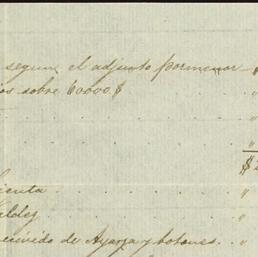 segun el adjunto pormenor $
os sobre 60000.$ "
"
"
$
ienta. "
aldez "
ecivido de Ayarza y botones. "